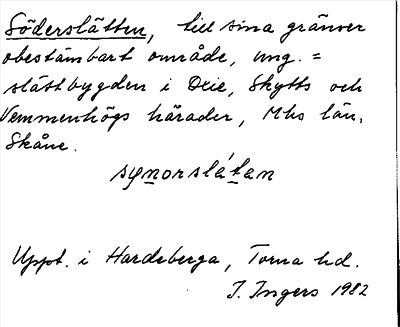 Söderslätten, till sina gränser
obestämbart område, ung. =
slättbygden i Oxie, Skytts och
Vemmenhögs härader, Mhs län,
Skåne.
synorslátan
Uppt. i Hardeberga, Torna hd.
I. Ingers 1982